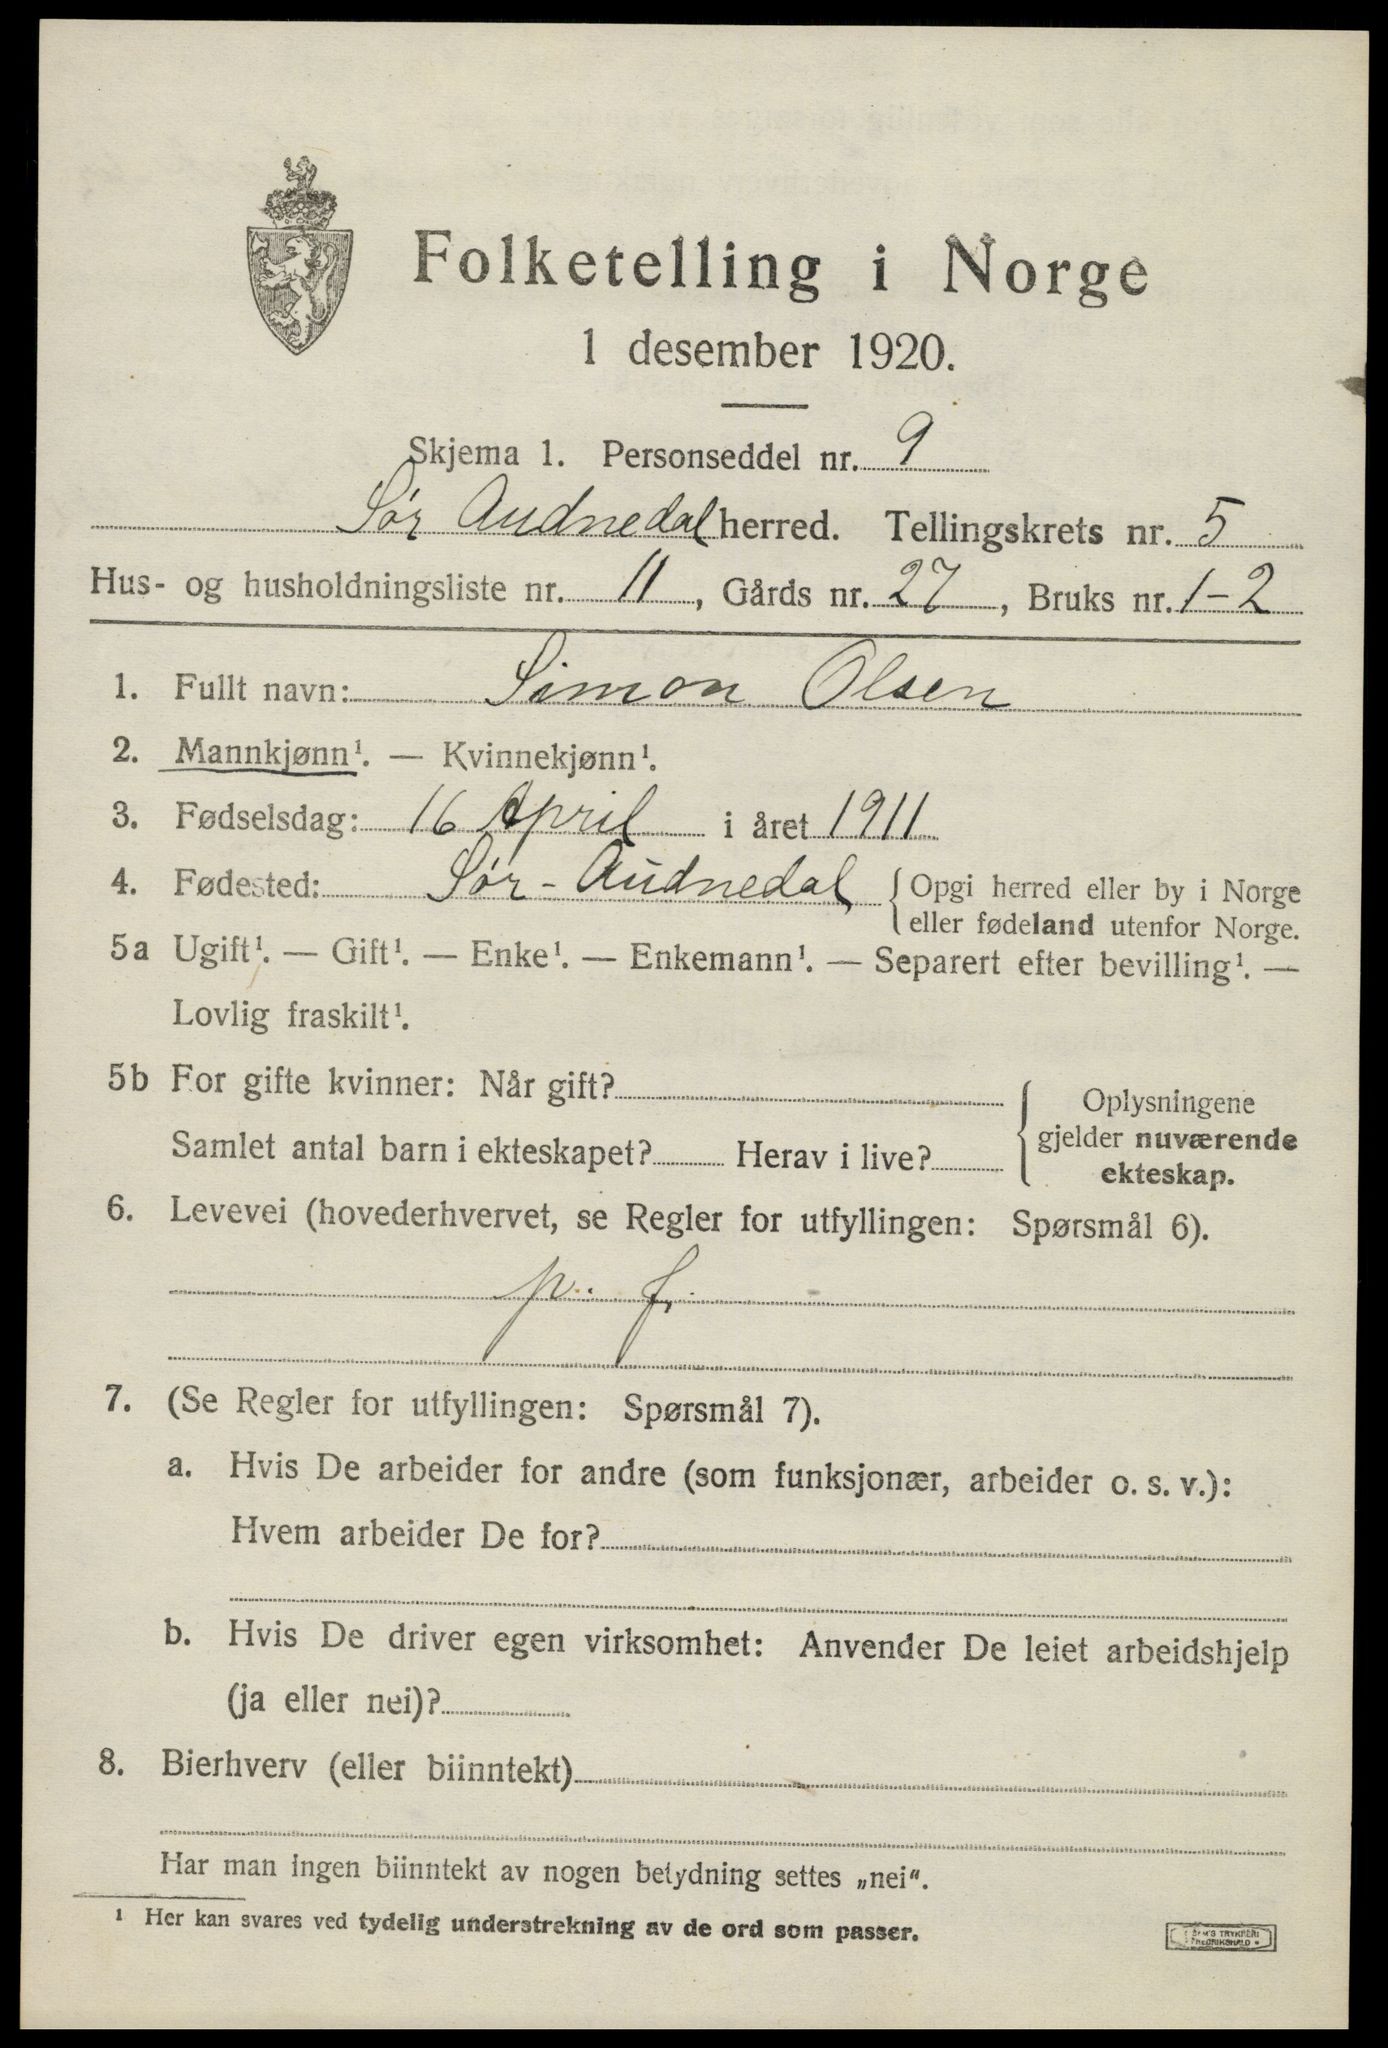 Folketelling i Norge
1 desember 1920.
Skjema 1. Personseddel nr. 9
Sør Audnedal herred. Tellingskrets nr. 5
Hus- og husholdningsliste nr. 11, Gårds nr. 27, Bruks nr. 1-2
1. Fullt navn: Simon Olsen
2. Mannkjønn¹. — Kvinnekjønn¹.
3. Fødselsdag: 16 April i året 1911
4. Fødested: Sør-Audnedal { Opgi herred eller by i Norge
eller fødeland utenfor Norge.
5a Ugift¹. — Gift¹. — Enke¹. — Enkemann¹. — Separert efter bevilling¹. —
Lovlig fraskilt¹.
5b For gifte kvinner: Når gift?
Samlet antal barn i ekteskapet? Herav i live?
Oplysningene
gjelder nuværende
ekteskap.
6. Levevei (hovederhvervet, se Regler for utfyllingen: Spørsmål 6).
p. f.
7. (Se Regler for utfyllingen: Spørsmål 7).
a. Hvis De arbeider for andre (som funksjonær, arbeider o. s. v.):
Hvem arbeider De for?
b. Hvis De driver egen virksomhet: Anvender De leiet arbeidshjelp
(ja eller nei)?
8. Bierhverv (eller biinntekt)
Har man ingen biinntekt av nogen betydning settes „nei“.
¹ Her kan svares ved tydelig understrekning av de ord som passer.
TRYKKERI
FREDRIKSHALD